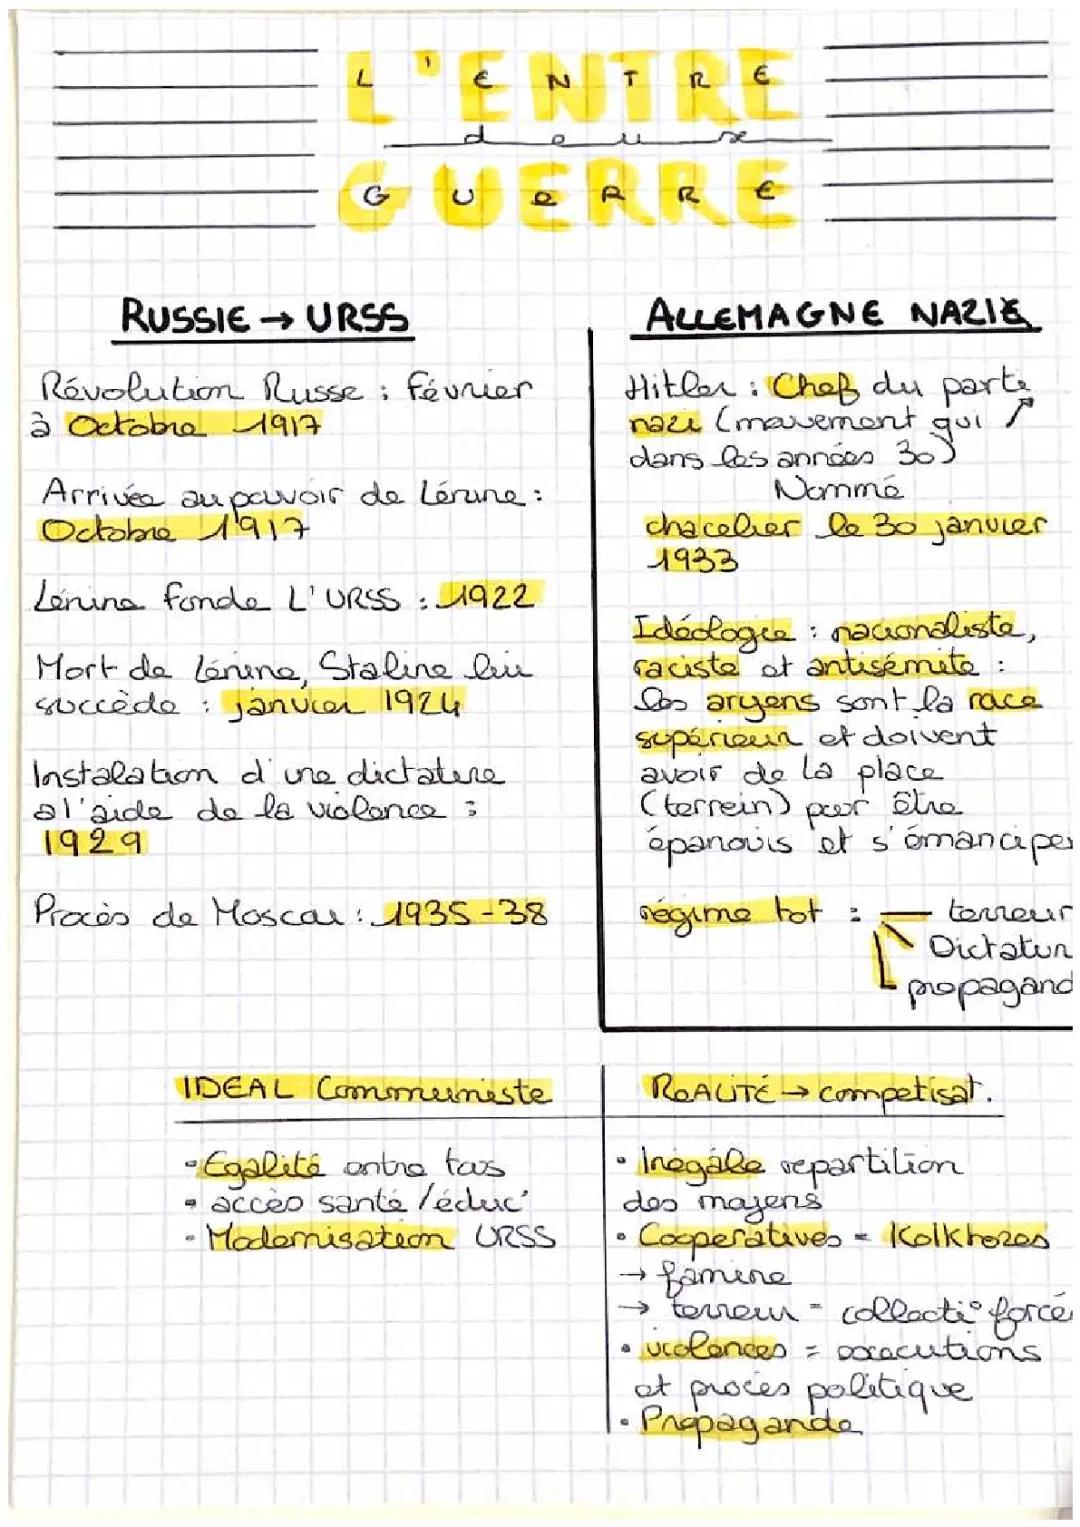 L'ENTRE
deux
GUERRE
RUSSIE → URSS
Révolution Russe : Février
à Octobre 1917
Arrivée au pouvoir de Lénine :
Octobre 1917
Lénine fonde L'URSS : 1922
Mort de Lénine, Staline lui
succède : janvier 1924
Instalation d'une dictature
a l'aide de la violence :
1929
Procès de Moscou : 1935-38
ALLEMAGNE NAZIE
Hitler : Chef du parti
nazi (mouvement qui ↗
dans les années 30)
Nommé
chacelier le 30 janvier
1933
Idéologie : nacionaliste,
raciste et antisémite :
les aryens sont la race
supérieur et doivent
avoir de la place
(terrein) pour être
épanouis et s'émanciper
régime tot : terreur
Dictatur
propagand
IDEAL Communiste
• Egalité entre tous
• accès santé/éduc°
• Modernisation URSS
RéALITÉ → competisat.
• Inégale repartition
des moyens
• Cooperatives = Kolkhozes
→ famine
→ terreur = collecti° forcé
• violences = excecutions
et procès politique
• Propagande